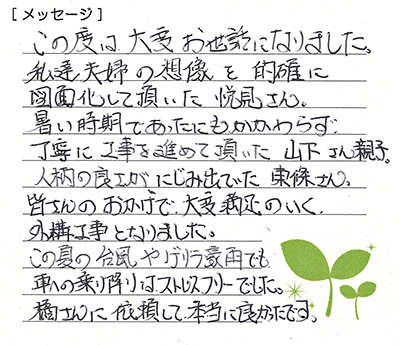 [メッセージ]
この度は大変お世話になりました。
私達夫婦の想像を的確に
図面化して頂いた 悦見さん。
暑い時期であったにもかかわらず
丁寧に工事を進めて頂いた 山下さん親子。
人柄の良さがにじみ出ていた 東條さん。
皆さんのおかげで、大変満足のいく、
外構工事となりました。
この夏の台風やゲリラ豪雨でも
車への乗り降りはストレスフリーでした。
橘さんに依頼して本当に良かったです。